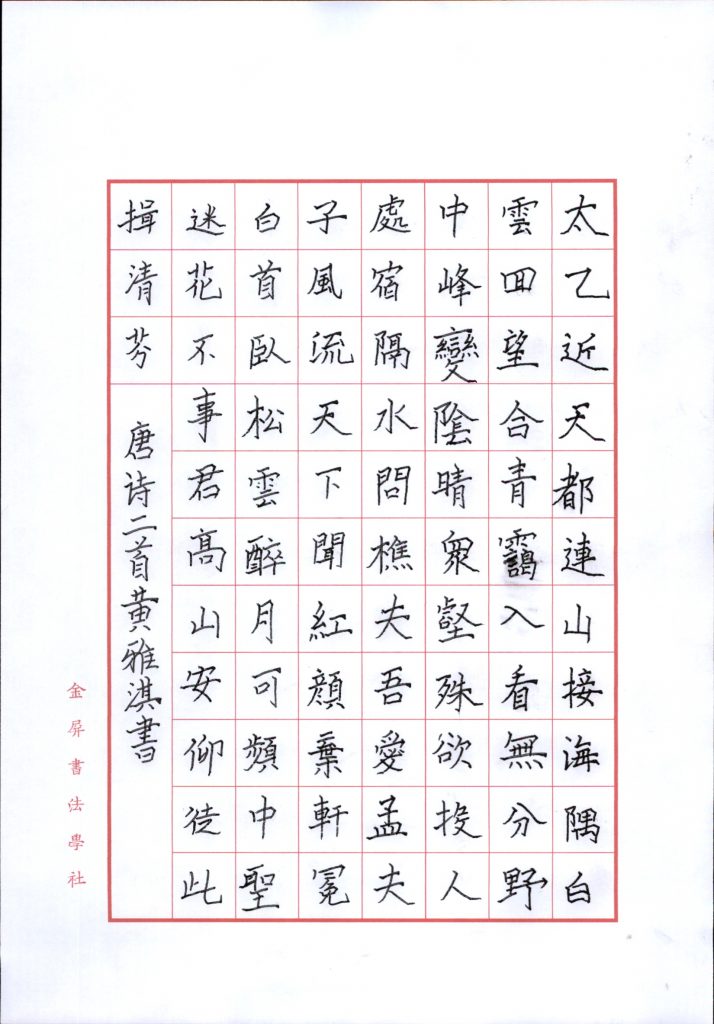 太乙近天都連山接海隅白
雲回望合青靄入看無分野
中峰變陰晴衆壑殊欲投人
處宿隔水問樵夫吾愛孟夫
子風流天下聞紅顏棄軒冕
白首臥松雲醉月可頻中聖
迷花不事君高山安仰徒此
揖清芬
唐诗二首黃雅淇書
金屏書法學社